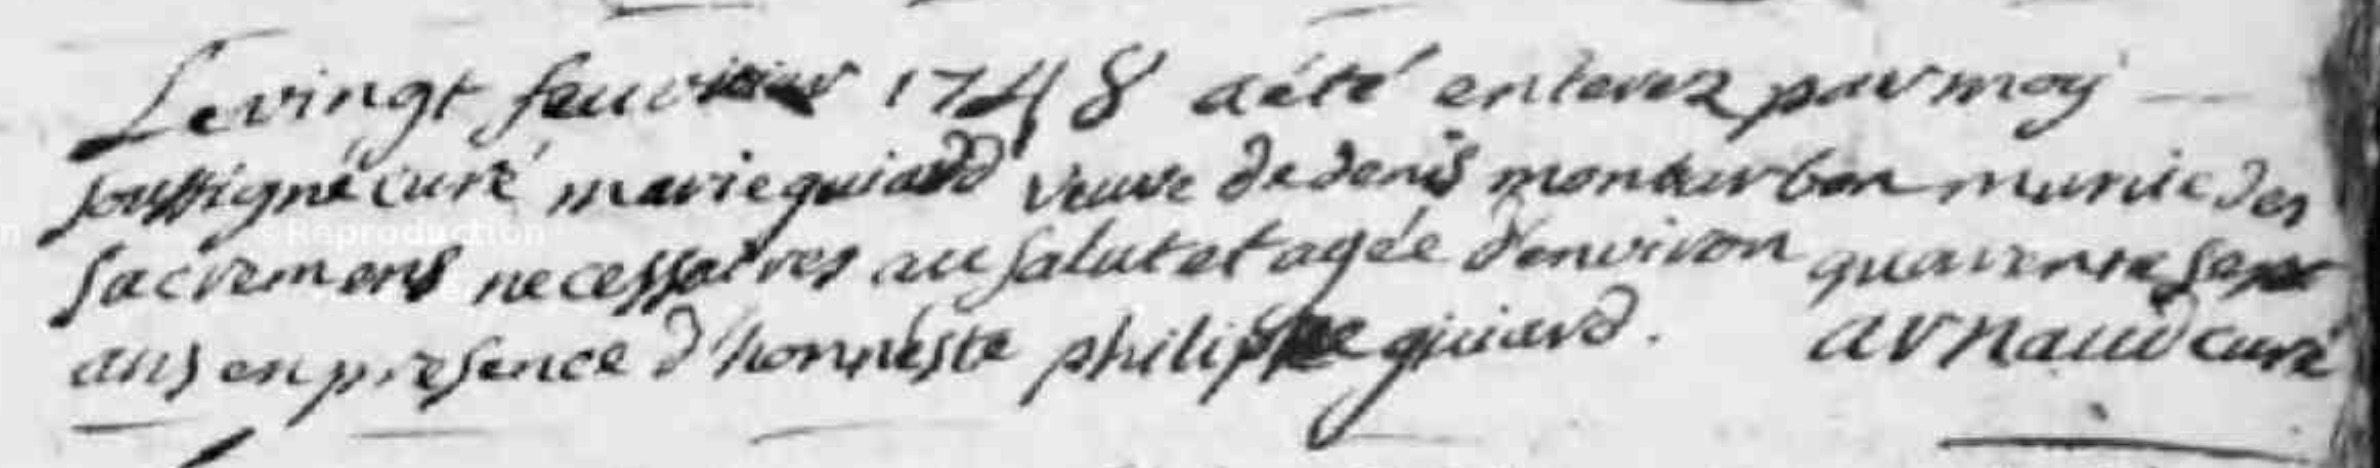 Le vingt feuvrier 1748 a été enterez par moy
soussigné curé marie guiard veuve de denis monturbon munie des
sacremens necessaires au salut et agée d'environ quarente sept
ans en presence d'honneste philippe guiard. arnaud curé